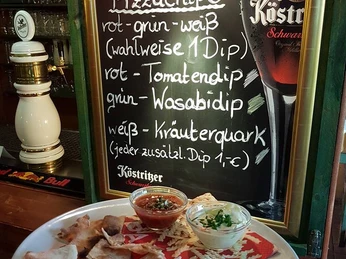 Pizzachips
rot-grün-weiß
(wahlweise 1 Dip)
rot - Tomatendip
grün - Wasabidip
weiß - Kräuterquark
(jeder zusätzl. Dip 1,-€)
Köstritzer
Köstritz
Schwarz
Bull